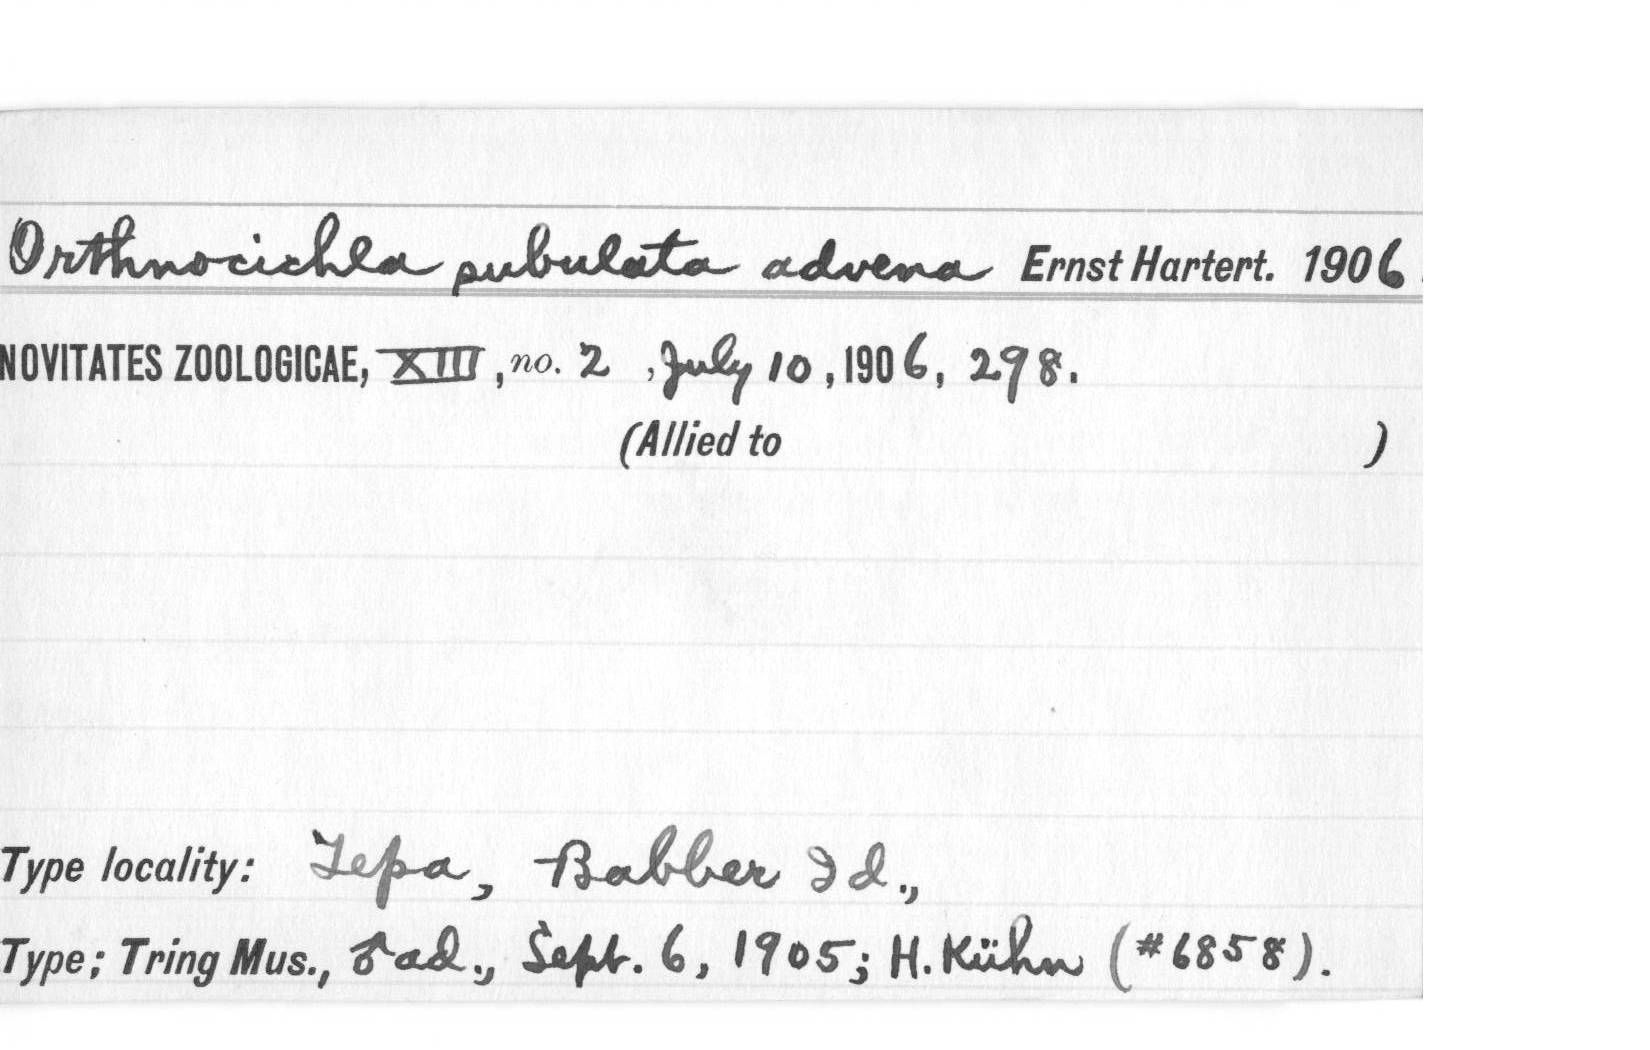 Orthnocichla subulata advena Ernst Hartert. 1906.
NOVITATES ZOOLOGICAE, XIII, no. 2, July 10, 1906, 298.
(Allied to )
Type locality: Tepa, Babber Id.,
Type; Tring Mus., ♂ ad., Sept. 6, 1905; H. Kühn (#6858).